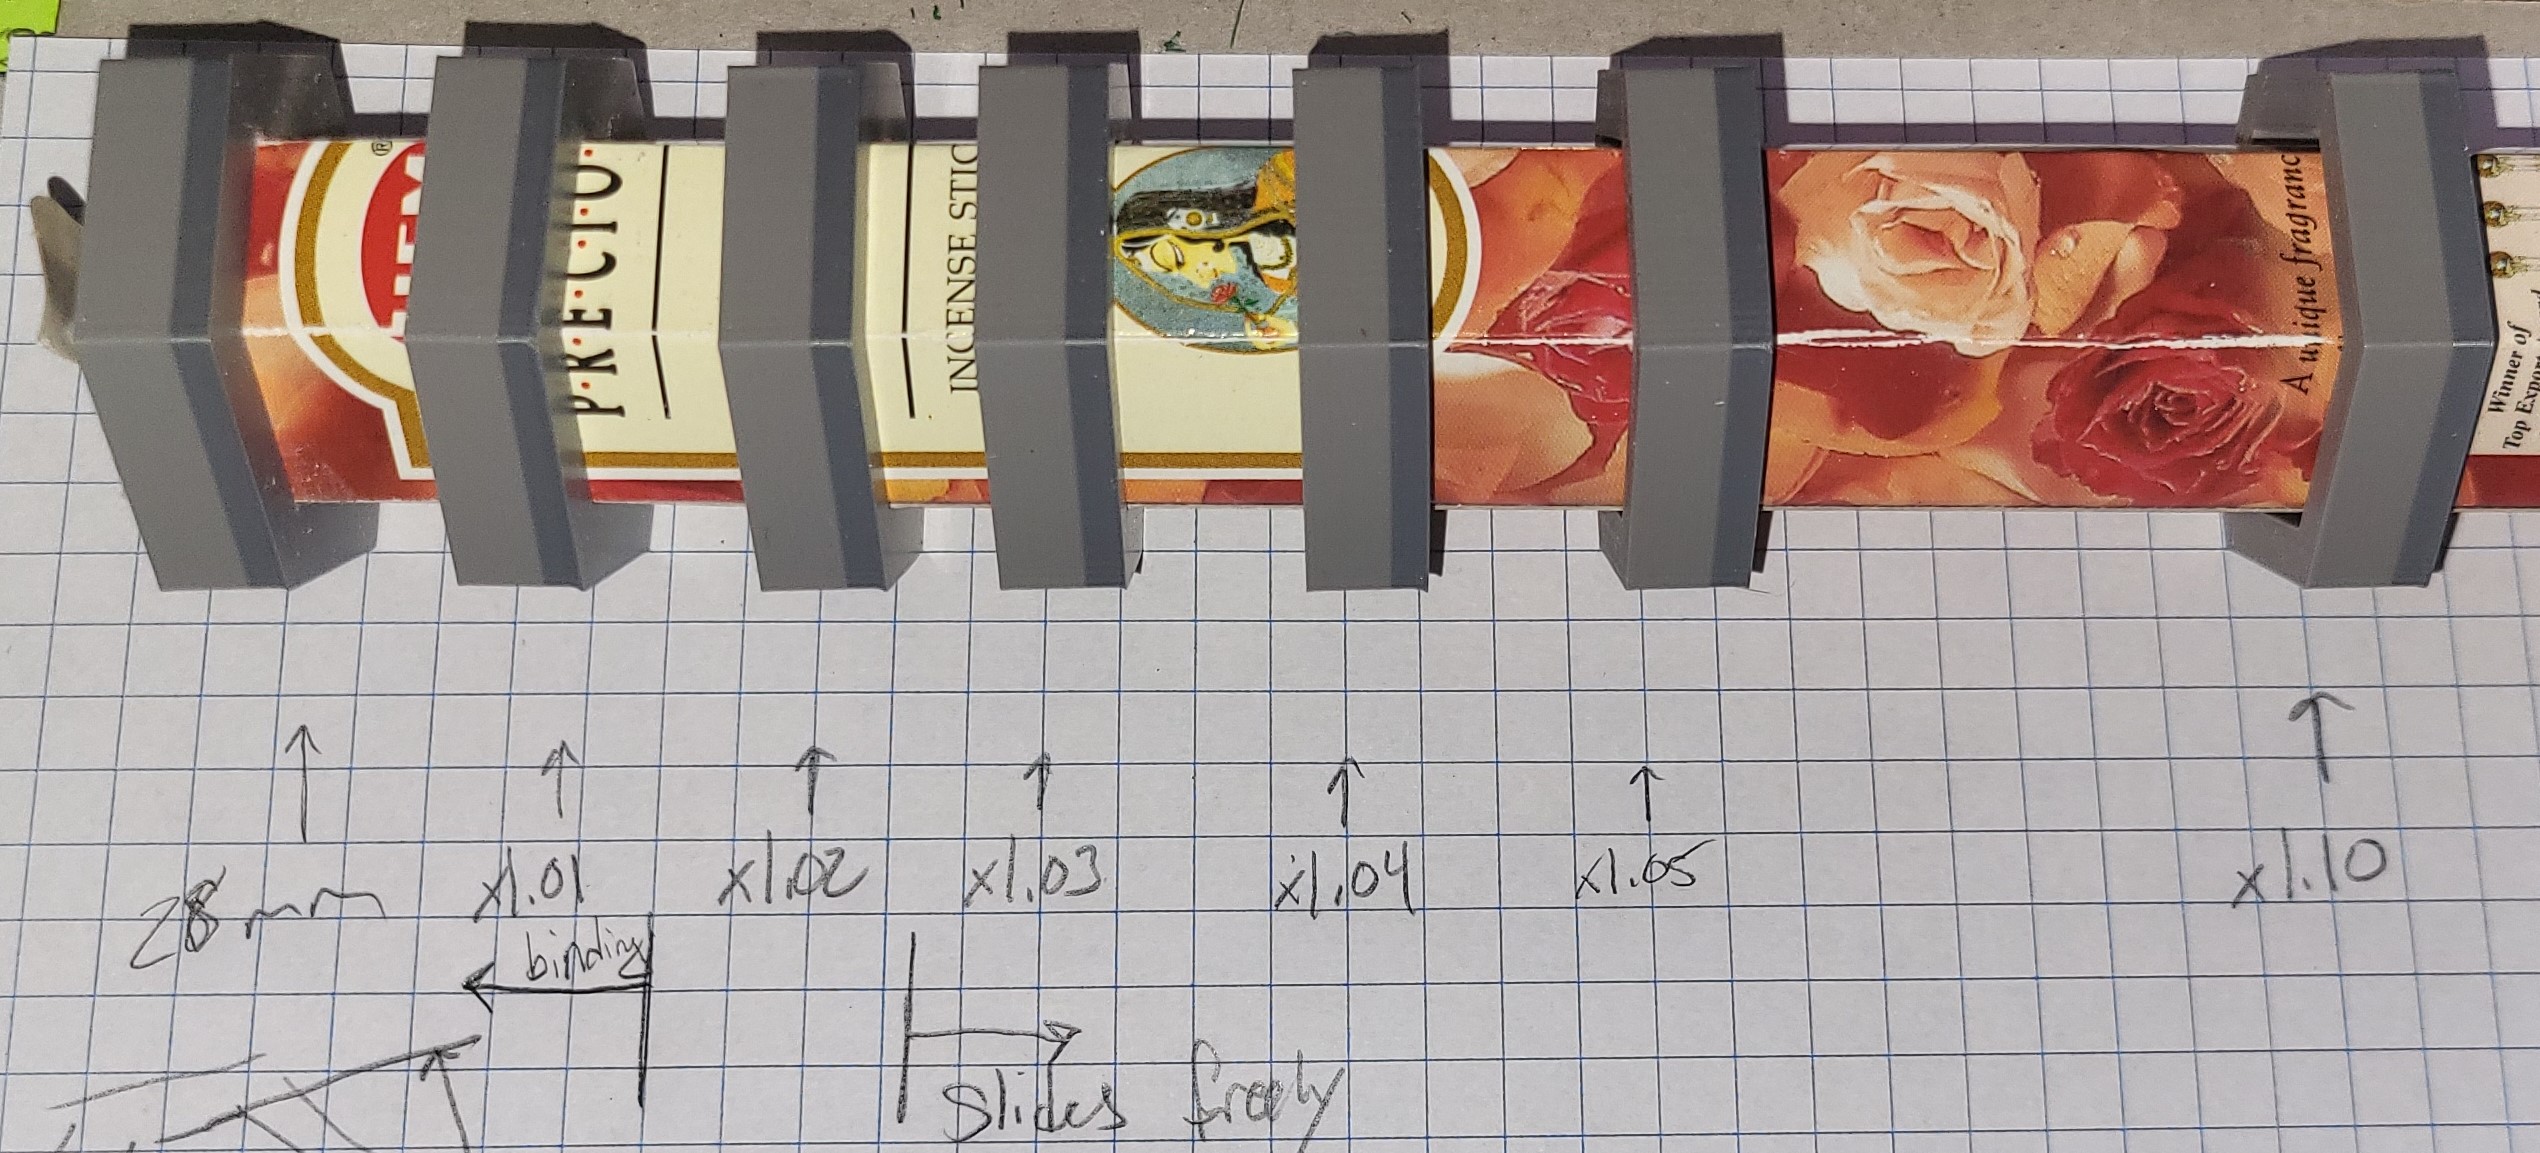 ®
HEM
P·R·E·C·I·O·
INCENSE STIC
A unique fragranc
Winner of
Top Expor
28mm
x1.01
x1.02
x1.03
x1.04
x1.05
x1.10
binding
Slides freely